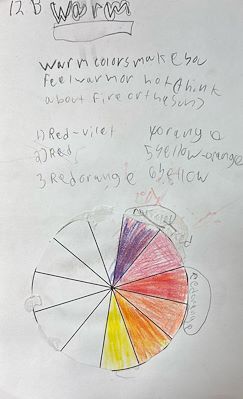 12 B Warm
warm colors make you
feel warm or hot (think
about fire or the sun)
1) Red-vilet 4 orange
2) Red 5 yellow-orange
3 Red orange 6 yellow
Red
Redorange